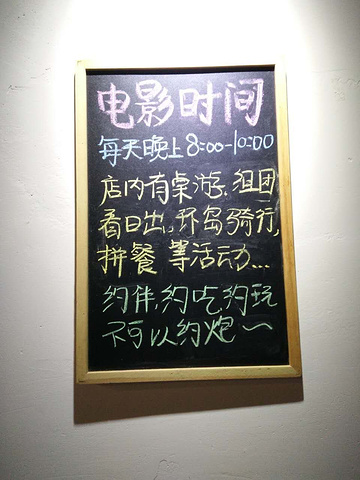 电影时间
每天晚上8:00-10:00
店内有桌游,组团
看日出,环岛骑行,
拼餐 等活动...
约伴,约吃,约玩
不可以约炮~